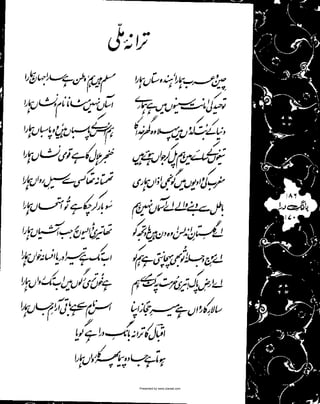 ترانۂ ملّی
چین و عرب ہمارا، ہندوستاں ہمارا
مسلم ہیں ہم، وطن ہے سارا جہاں ہمارا
توحید کی امانت سینوں میں ہے ہمارے
آساں نہیں مٹانا نام و نشاں ہمارا
دنیا کے بت کدوں میں پہلا وہ گھر خدا کا
ہم اس کے پاسباں ہیں، وہ پاسباں ہمارا
تیغوں کے سائے میں ہم پل کر جواں ہوئے ہیں
خنجر ہلال کا ہے قومی نشاں ہمارا
مغرب کی وادیوں میں گونجی اذاں ہماری
تھمتا نہ تھا کسی سے سیلِ رواں ہمارا
باطل سے دبنے والے اے آسماں نہیں ہم
سو بار کر چکا ہے تو امتحاں ہمارا
اے گلستانِ اندلس! وہ دن ہیں یاد تجھ کو
تھا تیری ڈالیوں میں جب آشیاں ہمارا
اے موجِ دجلہ! تو بھی پہچانتی ہے ہم کو
اب تک ہے تیرا دریا افسانہ خواں ہمارا
اے ارضِ پاک! تیری حرمت پہ کٹ مرے ہم
ہے خوں تری رگوں میں اب تک رواں ہمارا
سالارِ کارواں ہے میرِ حجاز اپنا
اس نام سے ہے باقی آرامِ جاں ہمارا
اقبال کا ترانہ بانگِ درا ہے گویا
ہوتا ہے جادہ پیما پھر کارواں ہمارا
بانگِ درا